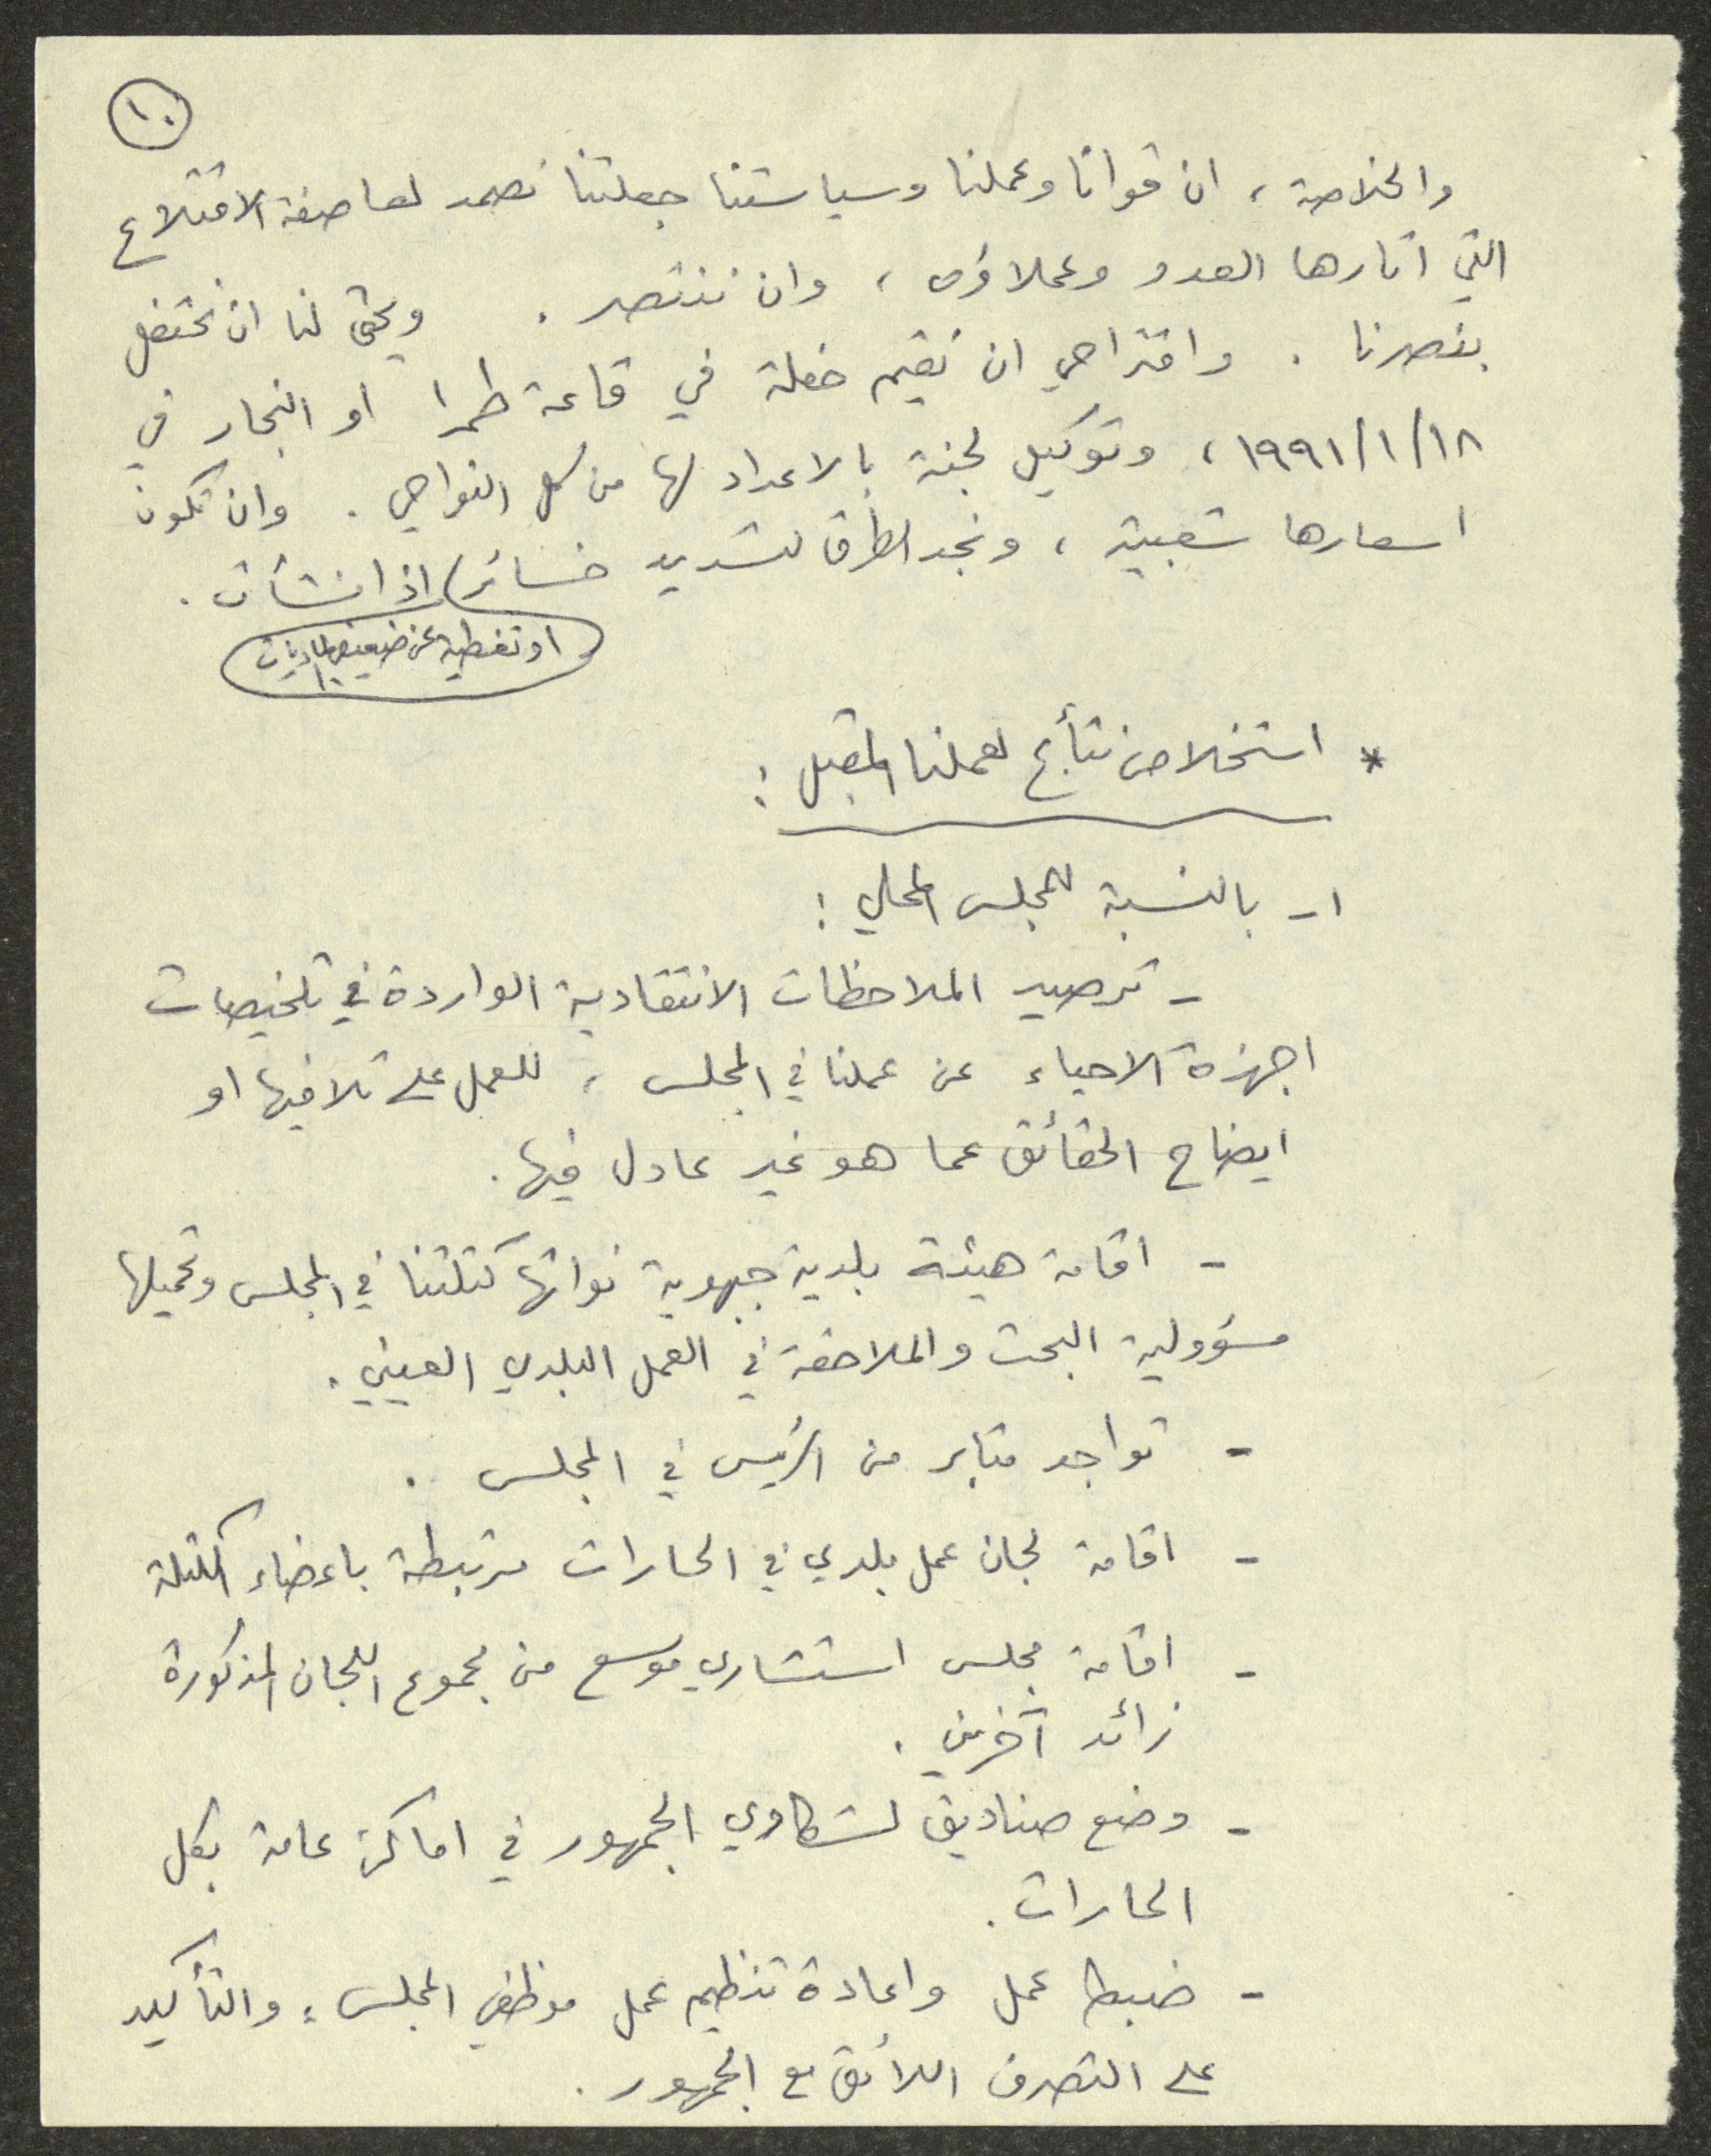 ١٠
والخلاصة ، ان قوانا وعملنا وسياستنا جعلتنا نصمد لعاصفة الاقتلاع
التي اثارها العدو وعملاؤه ، وان ننتصر . ويحق لنا ان نحتفل
بنصرنا . واقتراحي ان نقيم حفلة في قاعة طمرا او النجار في
١٨/١/١٩٩١ ، وتوكيل لجنة بالاعداد لها من كل النواحي . وان تكون
اسعارها شعبية ، ونجد الطرق لتسديد خسائر اذا نشأت .
او تغطية عن ضعيفي الماديات
* استخلاص نتائج لعملنا المقبل :
١- بالنسبة للمجلس المحلي :
- ترصيد الملاحظات الانتقادية الواردة في تلخيصات
اجهزة الاحياء عن عملنا في المجلس ، للعمل على تلافيها او
ايضاح الحقائق عما هو غير عادل فيها .
- اقامة هيئة بلدية جبهوية نواتها كتلتنا في المجلس وتحميلها
مسؤولية البحث والملاحقة في العمل البلدي العيني .
- تواجد مثابر من الرئيس في المجلس .
- اقامة لجان عمل بلدي في الحارات مرتبطة باعضاء الكتلة
- اقامة مجلس استشاري موسع من مجموع اللجان المذكورة
زائد آخرين .
- وضع صناديق لشكاوي الجمهور في اماكن عامة بكل
الحارات .
- ضبط عمل واعادة تنظيم عمل موظفي المجلس ، والتأكيد
على التصرف اللائق مع الجمهور .